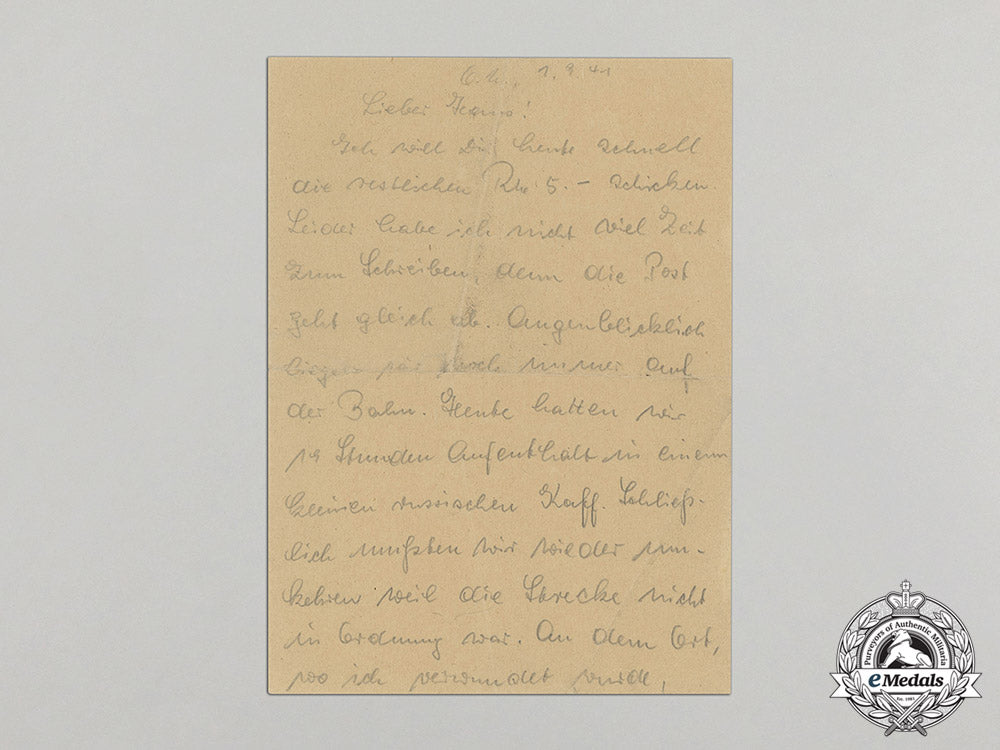 O.U., 1.9.41
Lieber Hans!
Ich will Dir heute schnell
die restlichen RM 5.– schicken.
Leider habe ich nicht viel Zeit
zum Schreiben, denn die Post
geht gleich ab. Augenblicklich
liegen wir noch immer auf
der Bahn. Heute hatten wir
Stunden Aufenthalt in einem
kleinen russischen Kaff. Schließ-
lich mußten wir wieder um-
kehren weil die Strecke nicht
in Ordnung war. An dem Ort,
wo ich verwundet wurde,
Purveyors of Authentic Militaria
eMedals
Est. 1985